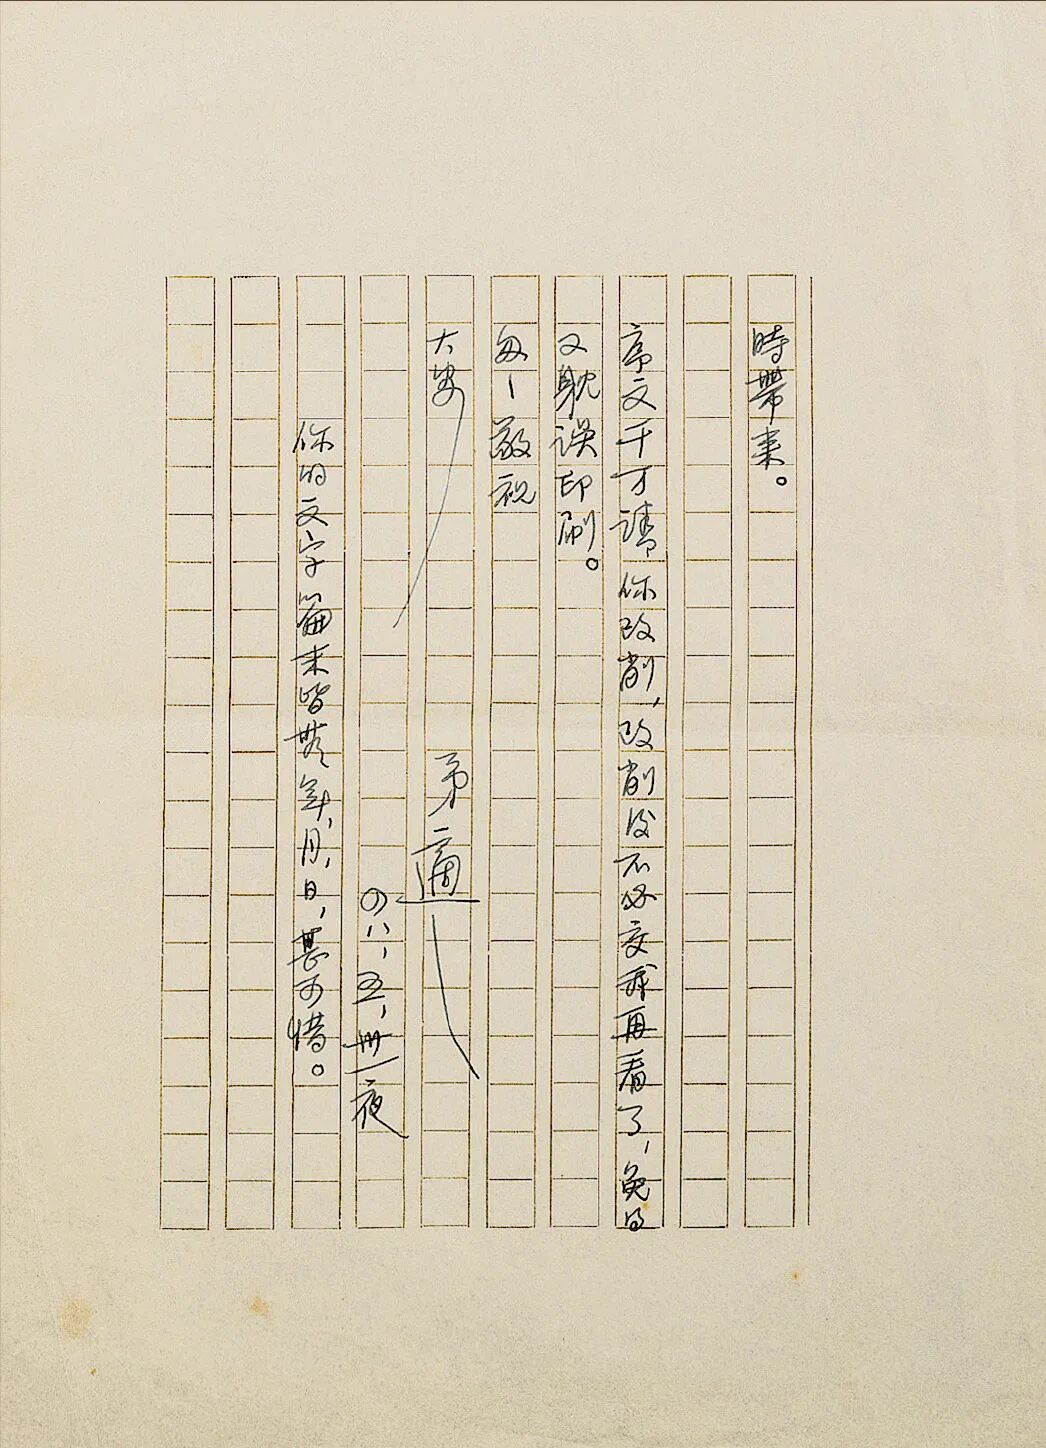 時帶來。
序文千万請你改削,改削後不必交我再看了,免得
又躭误印刷。
匆匆敬祝
大安
弟 適
四八,五,卅一夜
你的文字篇末皆無年,月,日,甚可惜。